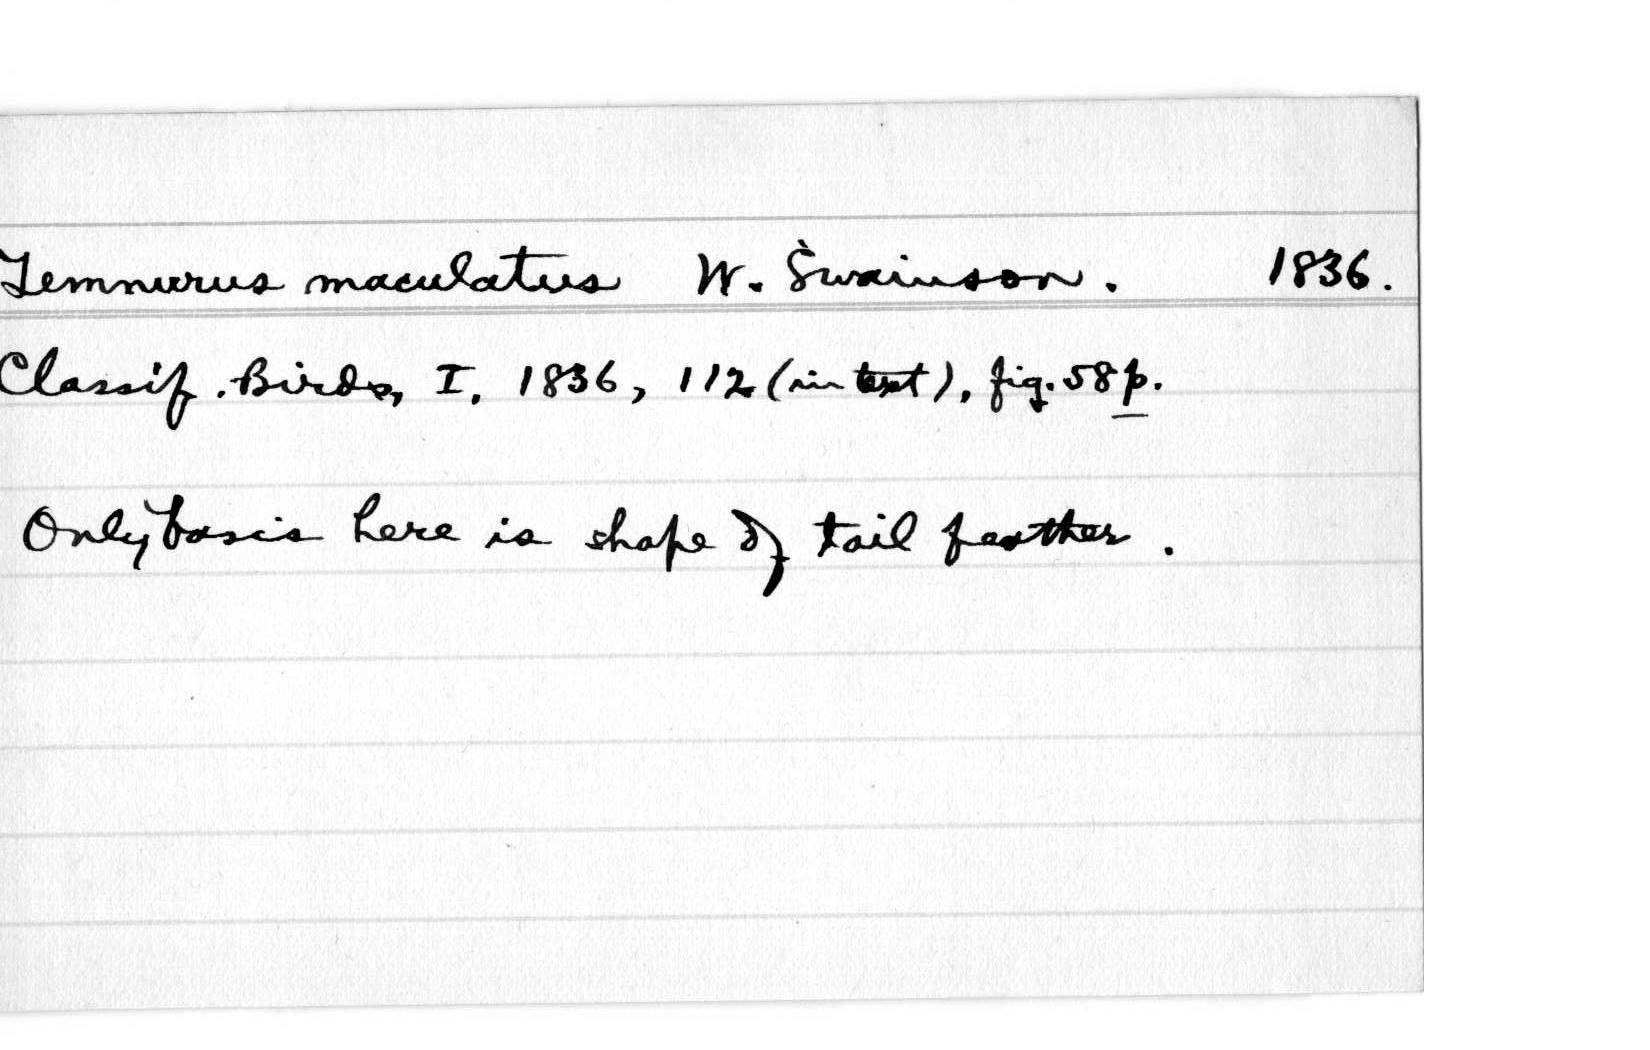 Temnurus maculatus W. Swainson. 1836.
Classif. Birds, I, 1836, 112 (in text), fig. 58 p.
Only basis here is shape of tail feather.